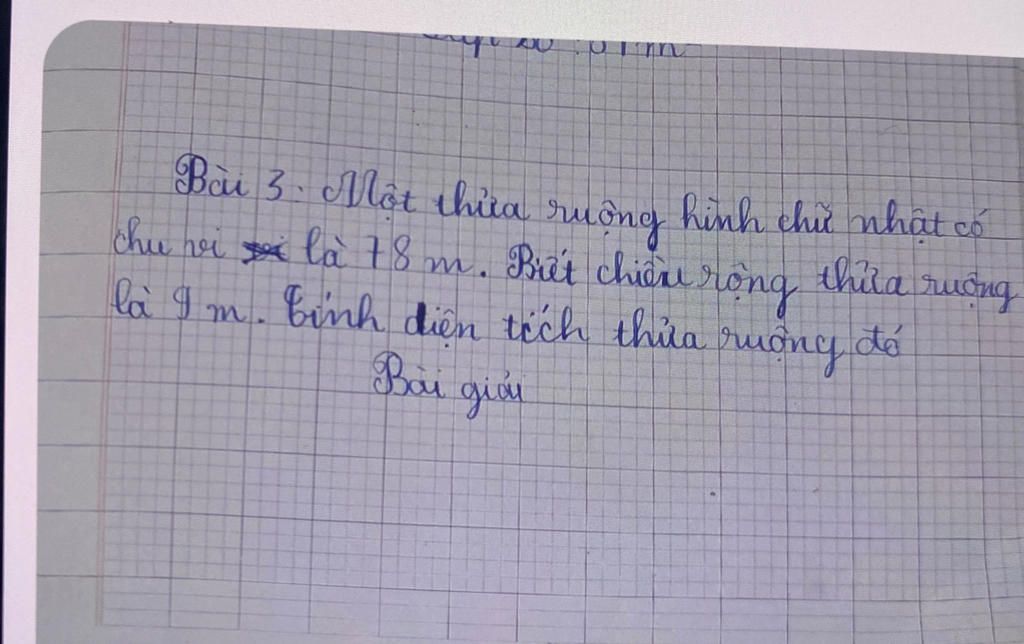 Bài 3. Một thửa ruộng hình chữ nhật có
chu vi là 78 m. Biết chiều rộng thửa ruộng
là 9 m. Tính diện tích thửa ruộng đó
Bài giải